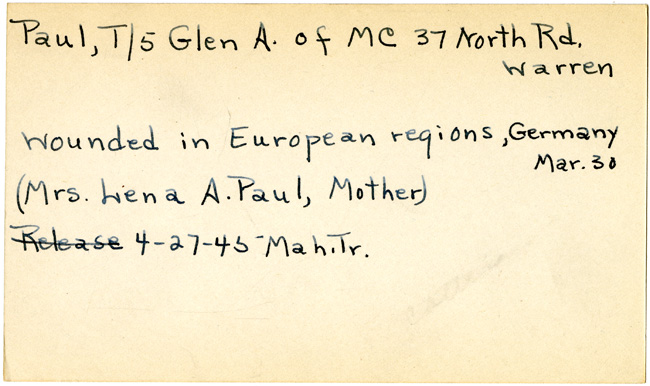 Paul, T/5 Glen A. of MC 37 North Rd.
Warren
Wounded in European regions, Germany
Mar. 30
(Mrs. Lena A. Paul, Mother)
Release 4-27-45 Mah. Tr.